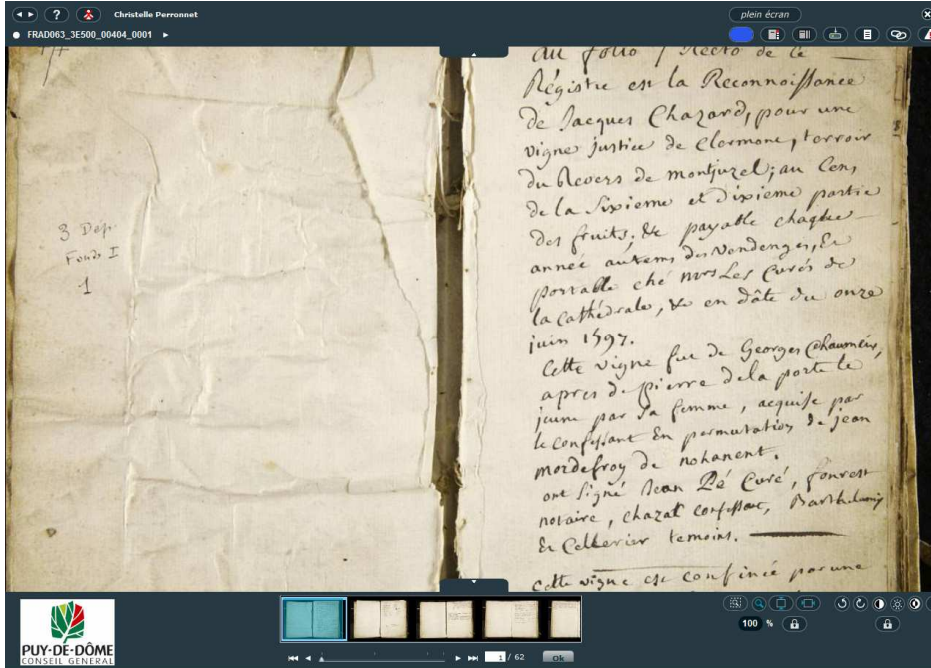 Christelle Perronnet
plein écran
FRAD063_3E500_00404_0001
3 Dép.
Fonds I
1
au folio 1 Recto de ce
Régistre est la Reconnoissance
de Jacques Chazard, pour une
vigne justice de Clermont, terroir
du Revers de montjuzel; au Cens
de la Sixieme et Dixieme partie
des fruits, & payable chaque
année au tems des Vendenges, &
portable ché mrs Les Curés de
la Cathédrale, & en dâte du onze
juin 1597.
Cette vigne fut de Georges
apres de pierre dela porte le
jeune par sa femme, acquise par
le confessant En permutation de jean
mordefroy de nohanent.
ont signé Jean Curé,
notaire, chazat confessant, Barthelemy
Et Cellerier temoins.
cette vigne est confinée par une
PUY-DE-DÔME
CONSEIL GENERAL
1 / 62
Ok
100 %